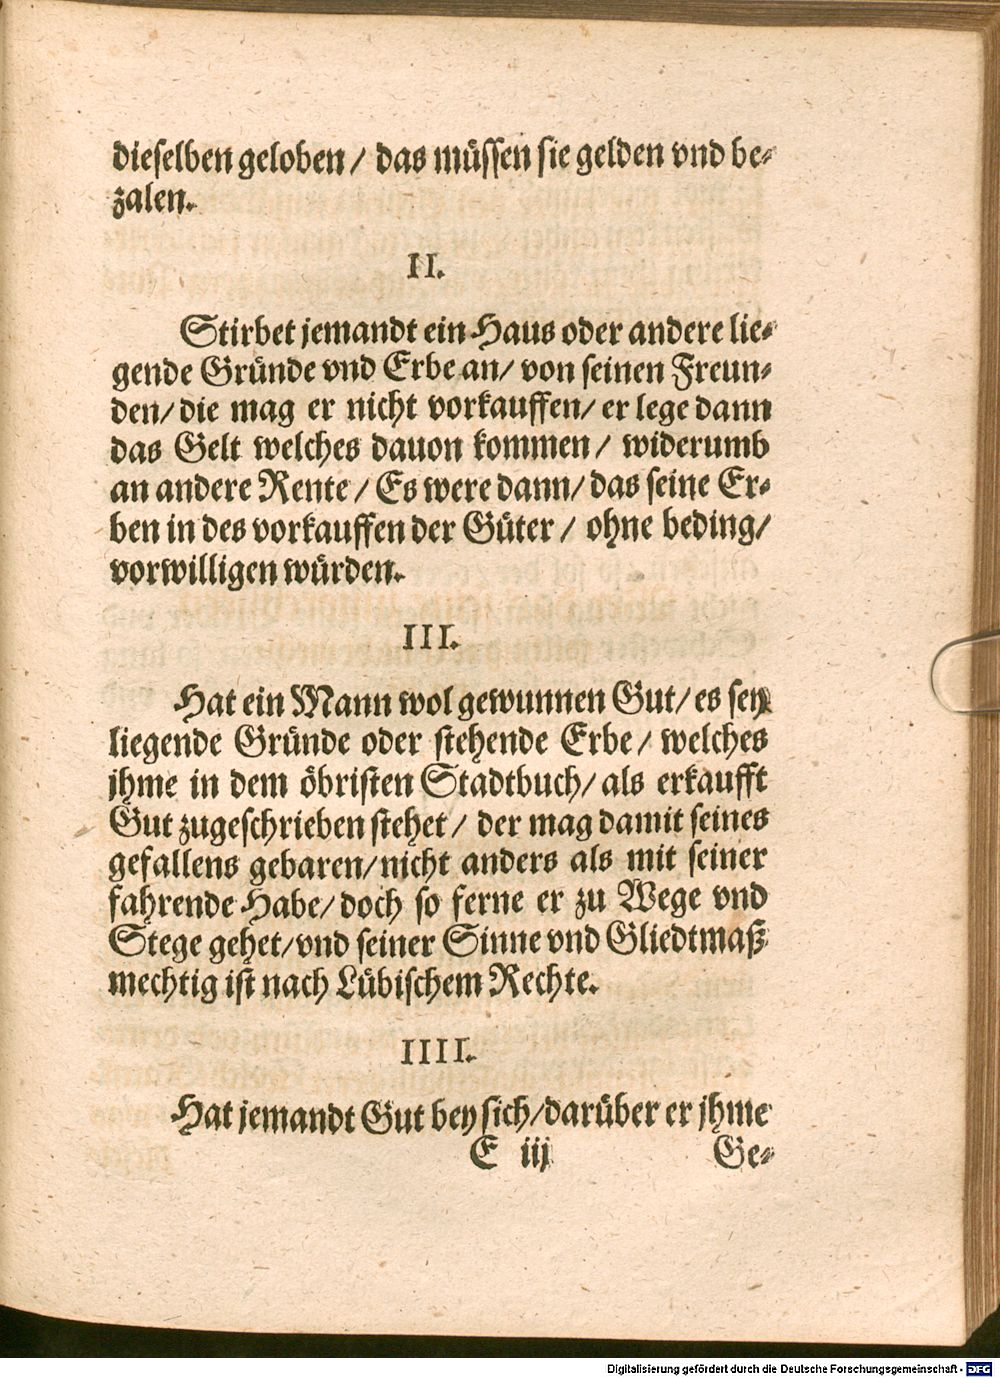 dieselben geloben / das müssen sie gelden vnd be-
zalen.
II.
Stirbet jemandt ein Haus oder andere lie-
gende Gründe vnd Erbe an / von seinen Freun-
den / die mag er nicht vorkauffen / er lege dann
das Gelt welches dauon kommen / widerumb
an andere Rente / Es were dann / das seine Er-
ben in des vorkauffen der Güter / ohne beding /
vorwilligen würden.
III.
Hat ein Mann wol gewunnen Gut / es sey
liegende Gründe oder stehende Erbe / welches
jhme in dem öbristen Stadtbuch / als erkaufft
Gut zugeschrieben stehet / der mag damit seines
gefallens gebaren / nicht anders als mit seiner
fahrende Habe / doch so ferne er zu Wege vnd
Stege gehet / vnd seiner Sinne vnd Gliedtmaß
mechtig ist nach Lübischem Rechte.
IIII.
Hat jemandt Gut bey sich / darüber er jhme
E iij Ge-
Digitalisierung gefördert durch die Deutsche Forschungsgemeinschaft - DFG